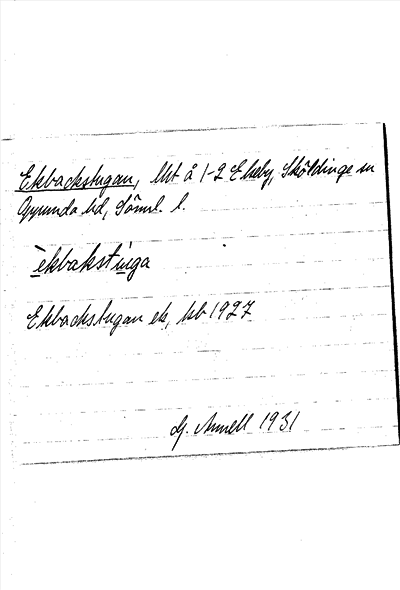 Ekbackstugan, lht å 1-2 Ekeby, Sköldinge sn
Oppunda hd, Söml. l.
`ekbakstuga
Ekbackstugan ek, kb 1927
G. Annell 1931